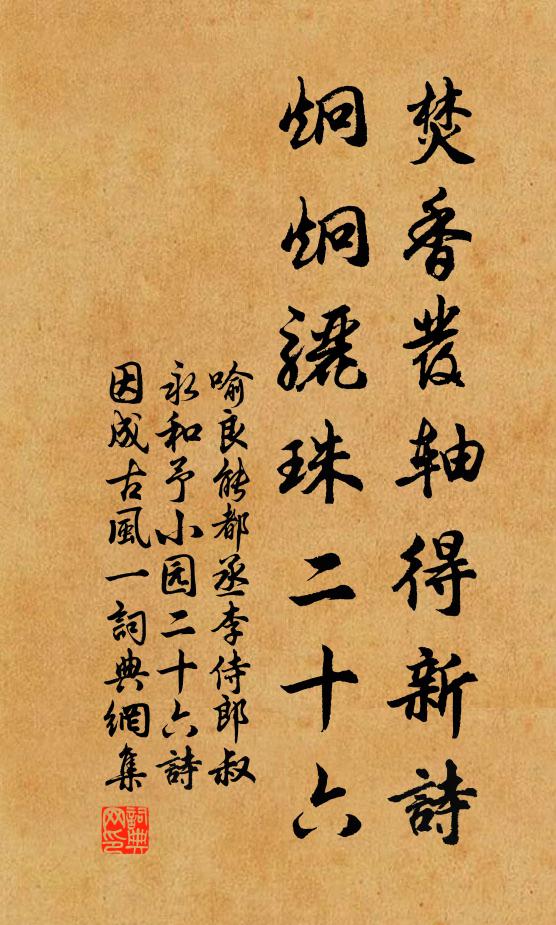 焚香發軸得新詩
炯炯驪珠二十六
喻良能都丞李侍郎叔
永和予小园二十六詩
因成古風一詞典網集
詞典网印